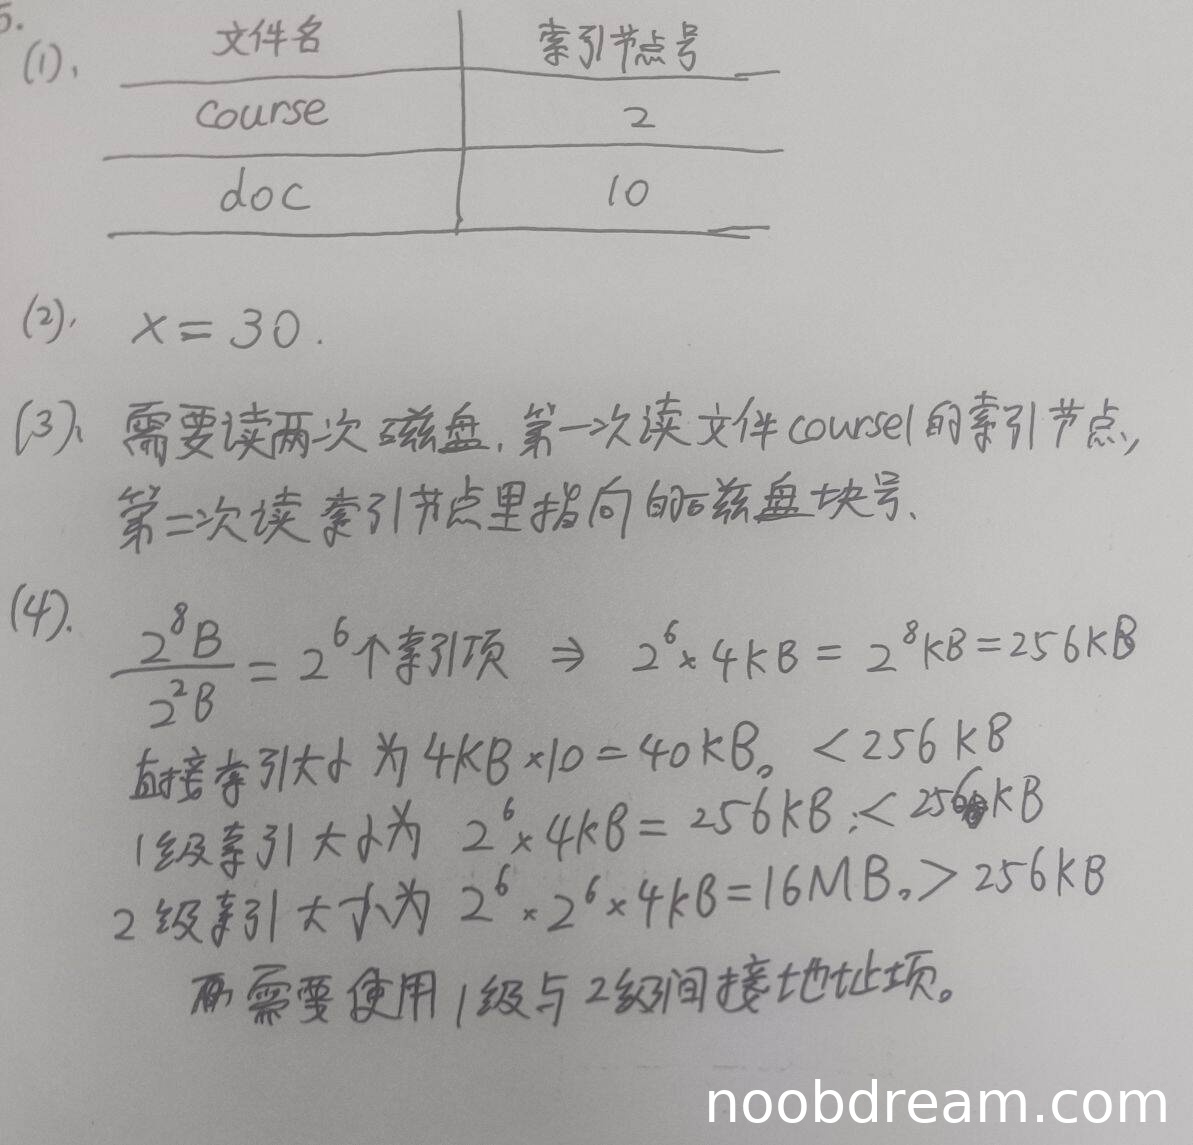 5.
(1). 文件名 索引节点号
course 2
doc 10
(2). x = 30.
(3). 需要读两次磁盘. 第一次读文件course1的索引节点,
第二次读索引节点里指向的磁盘块号.
(4). 2⁸B / 2²B = 2⁶个索引项 ⇒ 2⁶ × 4KB = 2⁸KB = 256KB
直接索引大小为 4KB × 10 = 40KB。 < 256KB
1级索引大小为 2⁶ × 4KB = 256KB; < 256KB
2级索引大小为 2⁶ × 2⁶ × 4KB = 16MB。 > 256KB
需要使用1级与2级间接地址项。
noobdream.com